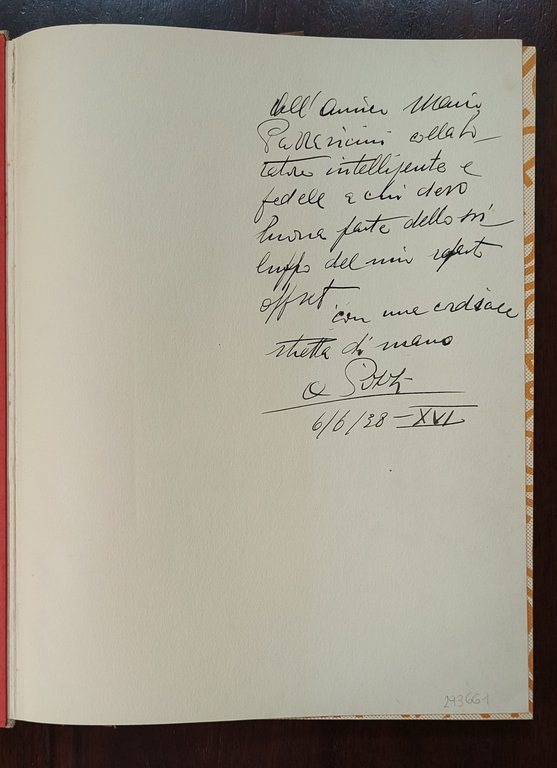 all'amico Mario
collabo-
ratore intelligente e
fedele a cui devo
buona parte dello svi-
luppo del mio reparto
offset
con una cordiale
stretta di mano
6/6/38 - XVI
293661